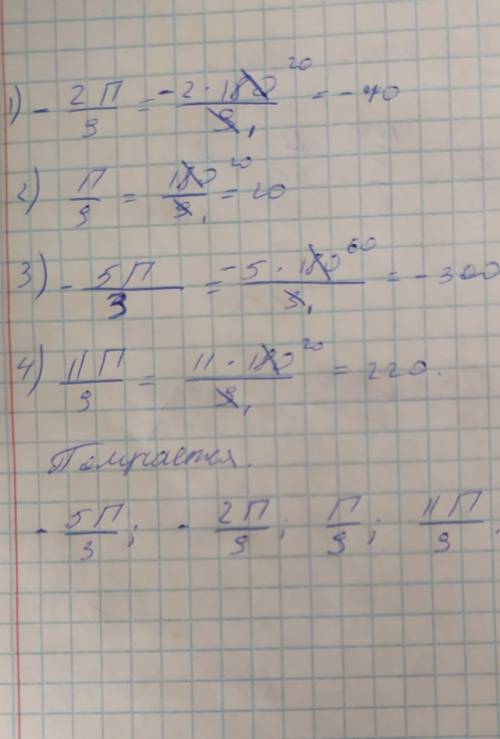 1) - 2П/9 = -2·180/9 20 1 = -40
2) П/9 = 180/9 20 1 = 20
3) - 5П/3 = -5·180/3 60 1 = -300
4) 11П/9 = 11·180/9 20 1 = 220.
Получается.
- 5П/3; - 2П/9; П/9; 11П/9.